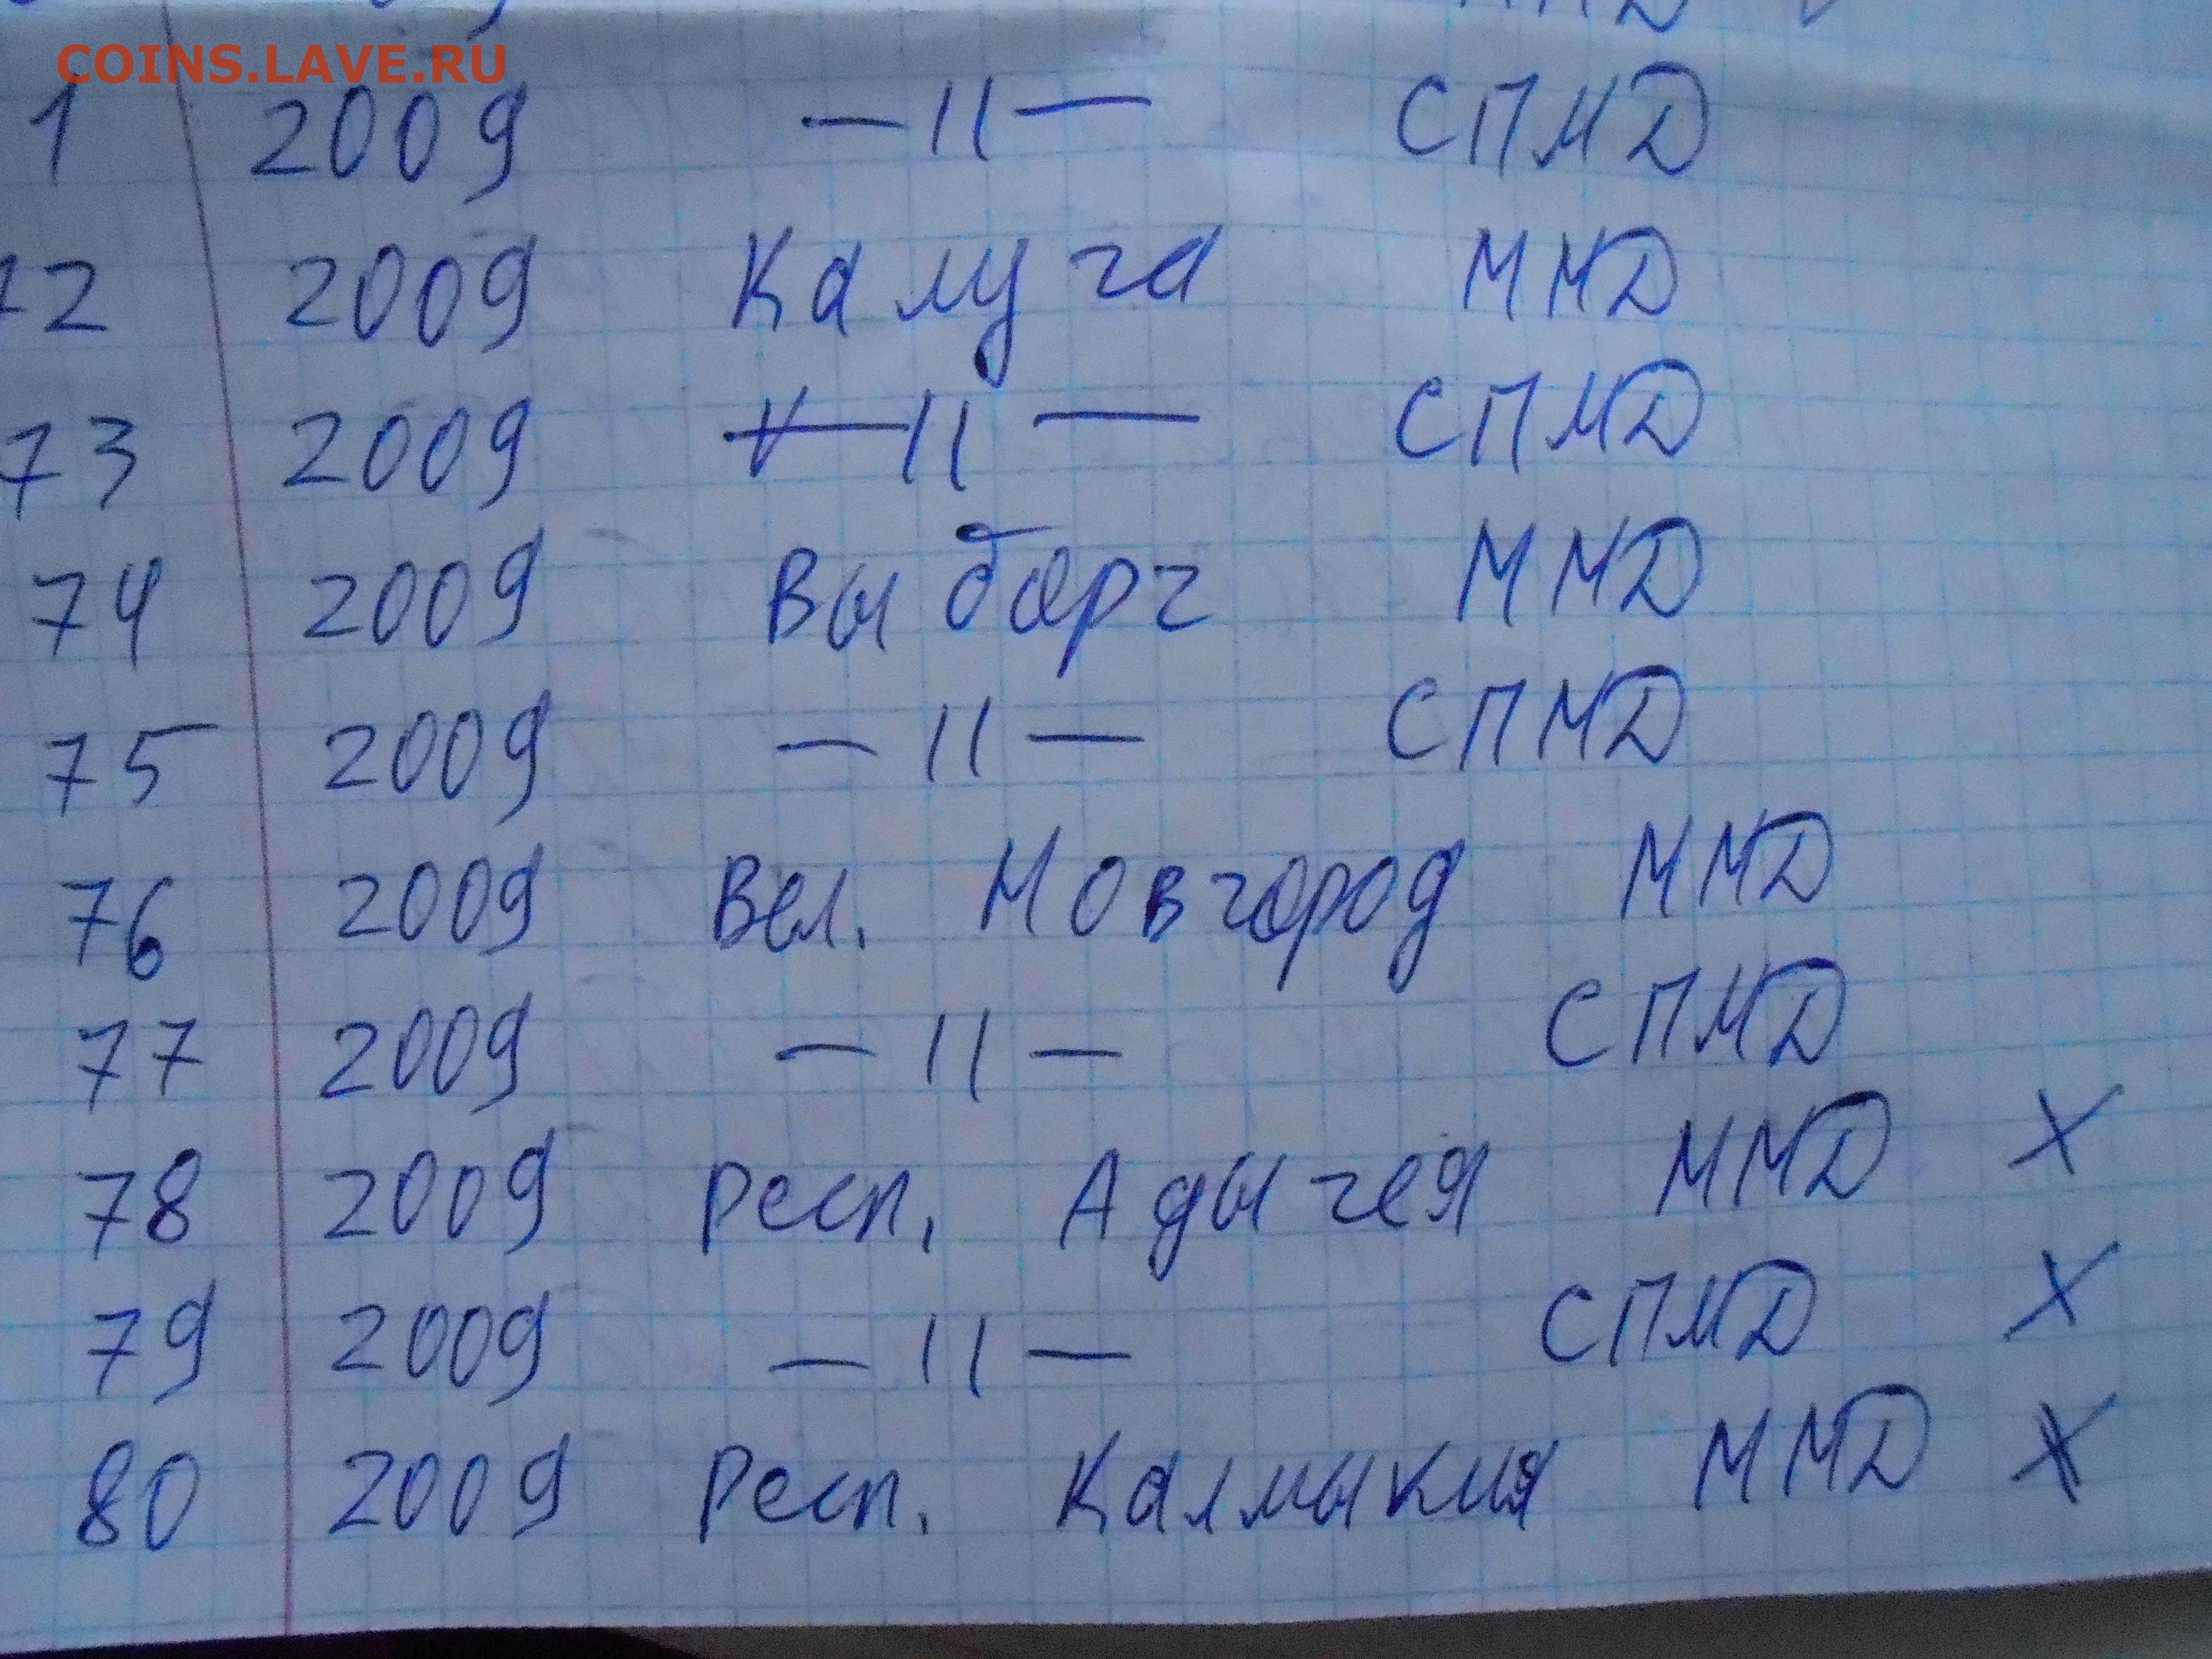 ММД
COINS.LAVE.RU
1 2009 —II— СПМД
72 2009 Калуга ММД
73 2009 —II— СПМД
74 2009 Выборг ММД
75 2009 —II— СПМД
76 2009 Вел. Новгород ММД
77 2009 —II— СПМД
78 2009 Респ. Адыгея ММД X
79 2009 —II— СПМД X
80 2009 Респ. Калмыкия ММД X